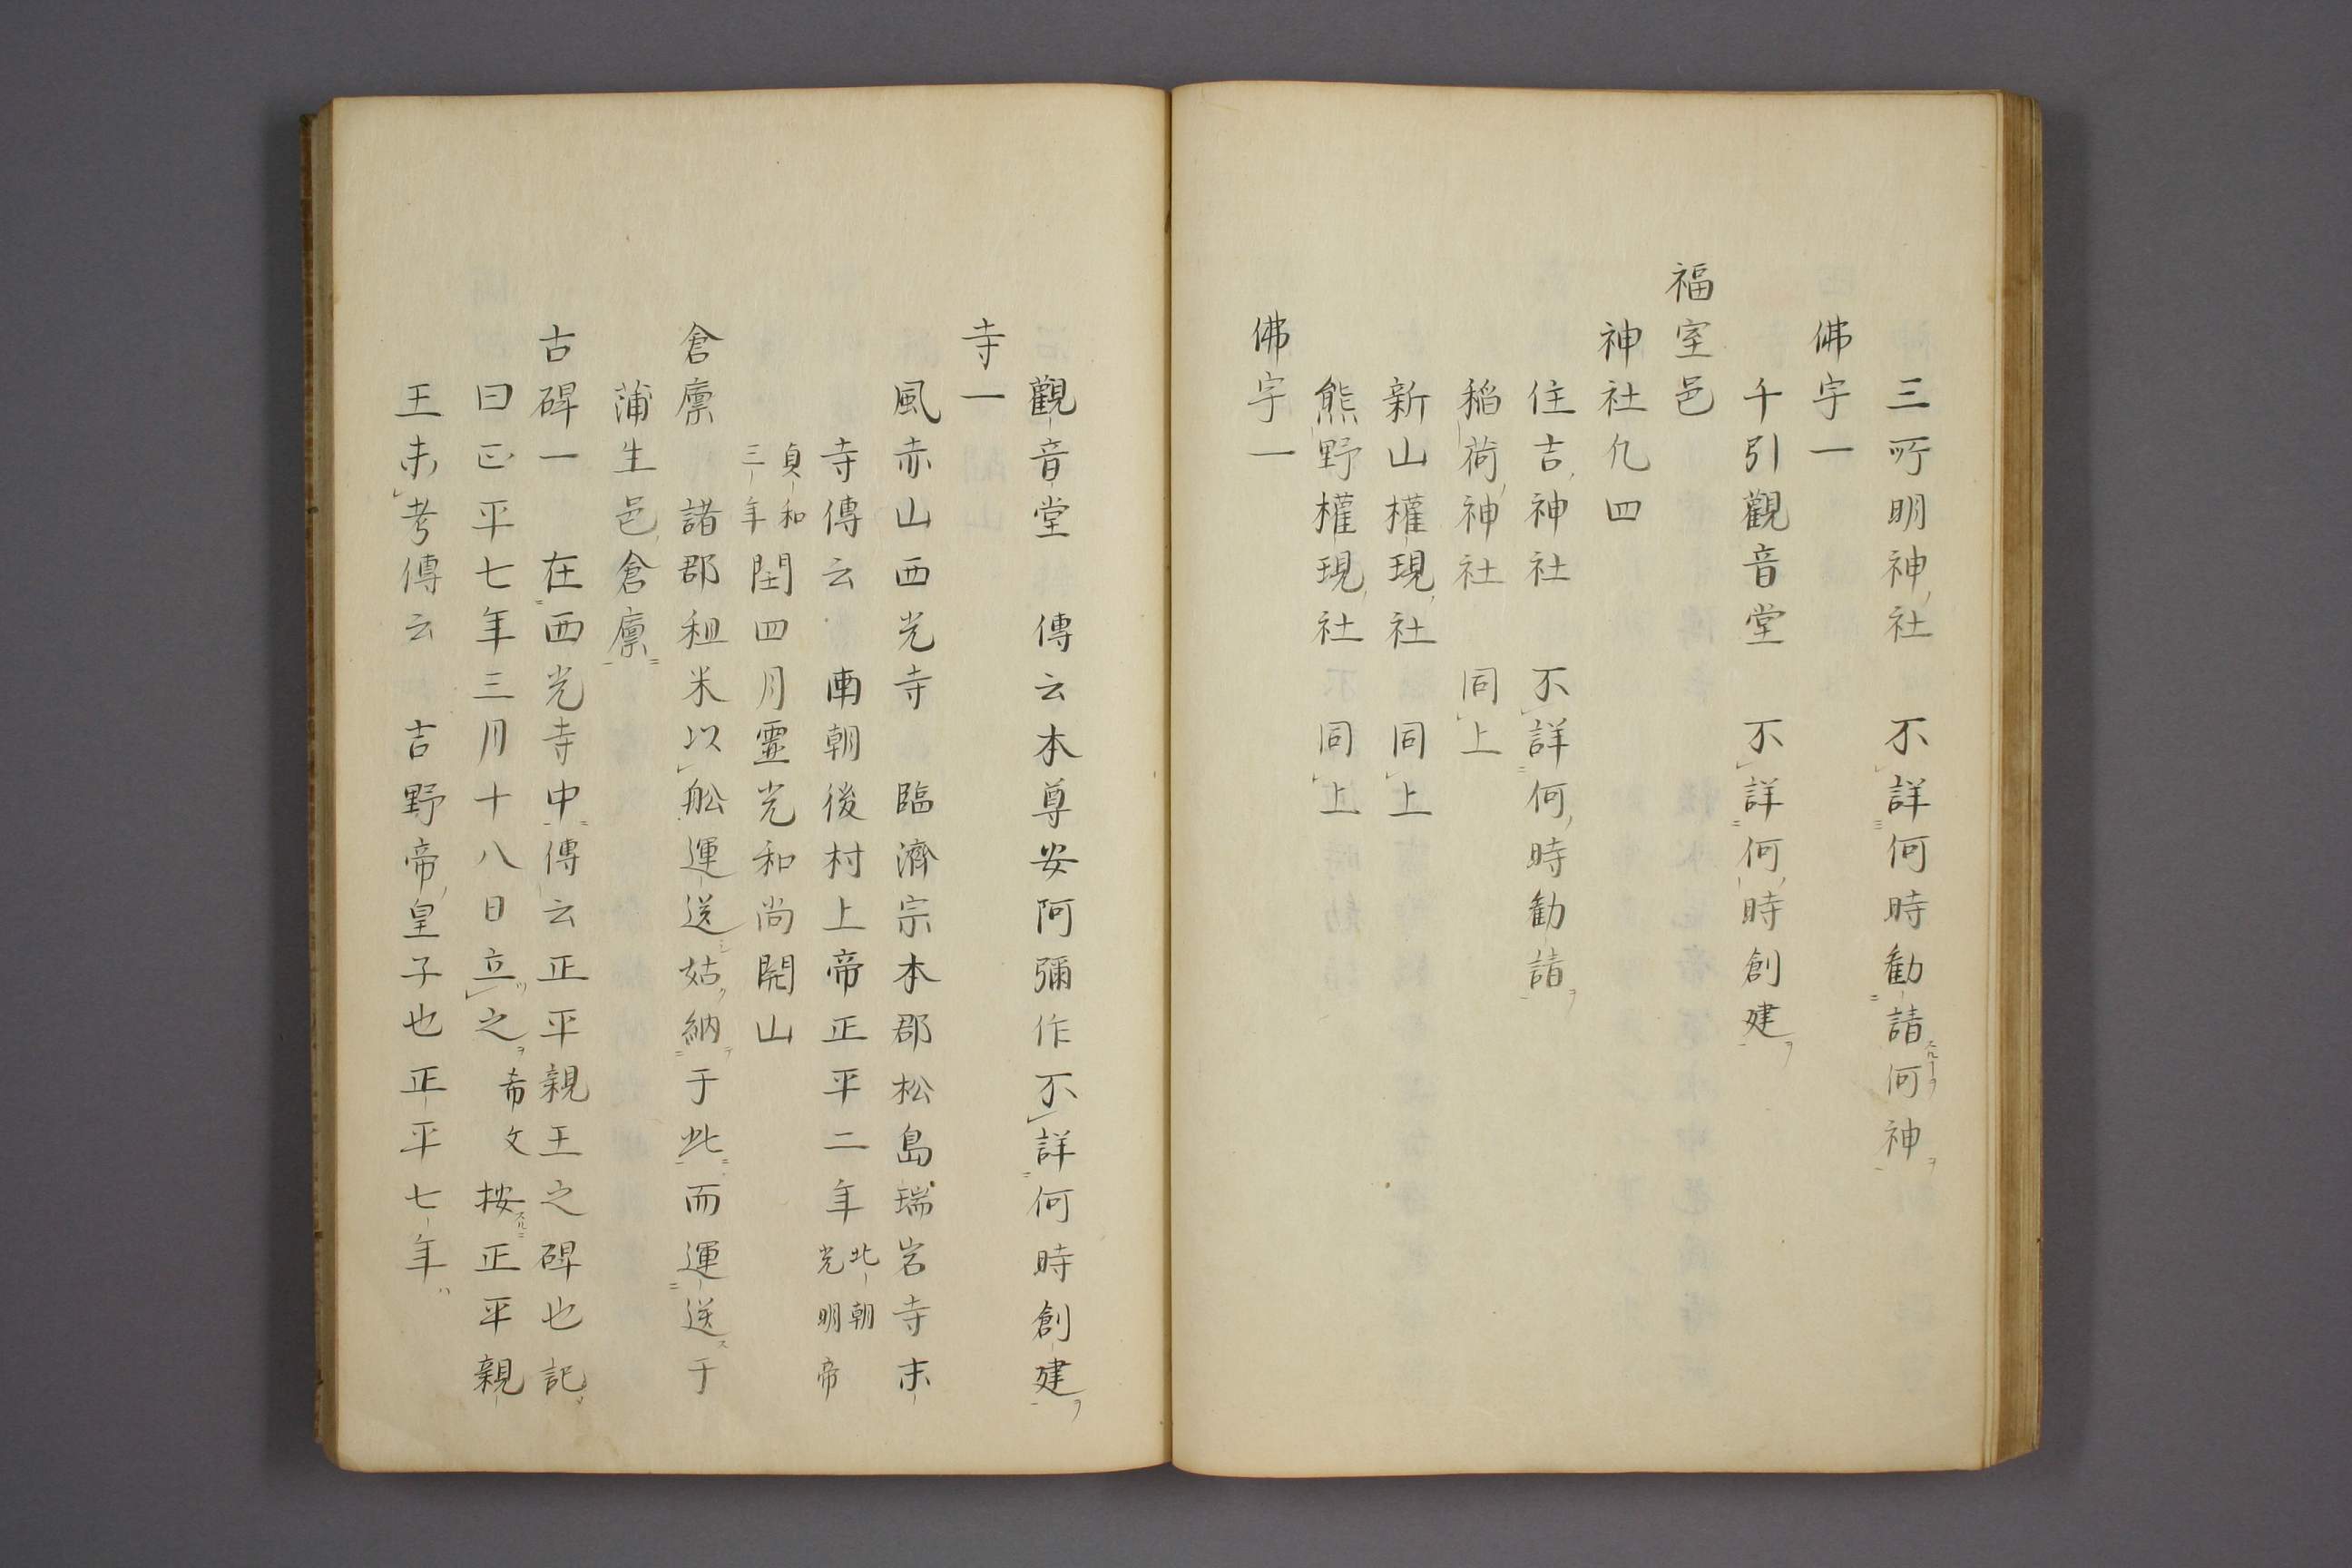 三所明神社　不詳何時勸請何神
佛宇一
千引觀音堂　不詳何時創建
福室邑
神社凡四
住吉神社　不詳何時勸請
稲荷神社　同上
新山權現社　同上
熊野權現社　同上
佛宇一
觀音堂　傳云本尊安阿彌作不詳何時創建
寺一
風赤山西光寺　臨濟宗本郡松島瑞岩寺末
寺傳云　南朝後村上帝正平二年北朝光明帝
貞和三年閏四月靈光和尚開山
倉廪　諸郡租米以舩運送姑納于此而運送于
蒲生邑倉廪
古碑一　在西光寺中傳云正平親王之碑也記
曰正平七年三月十八日立之希文　按正平親
王未考傳云　吉野帝皇子也正平七年